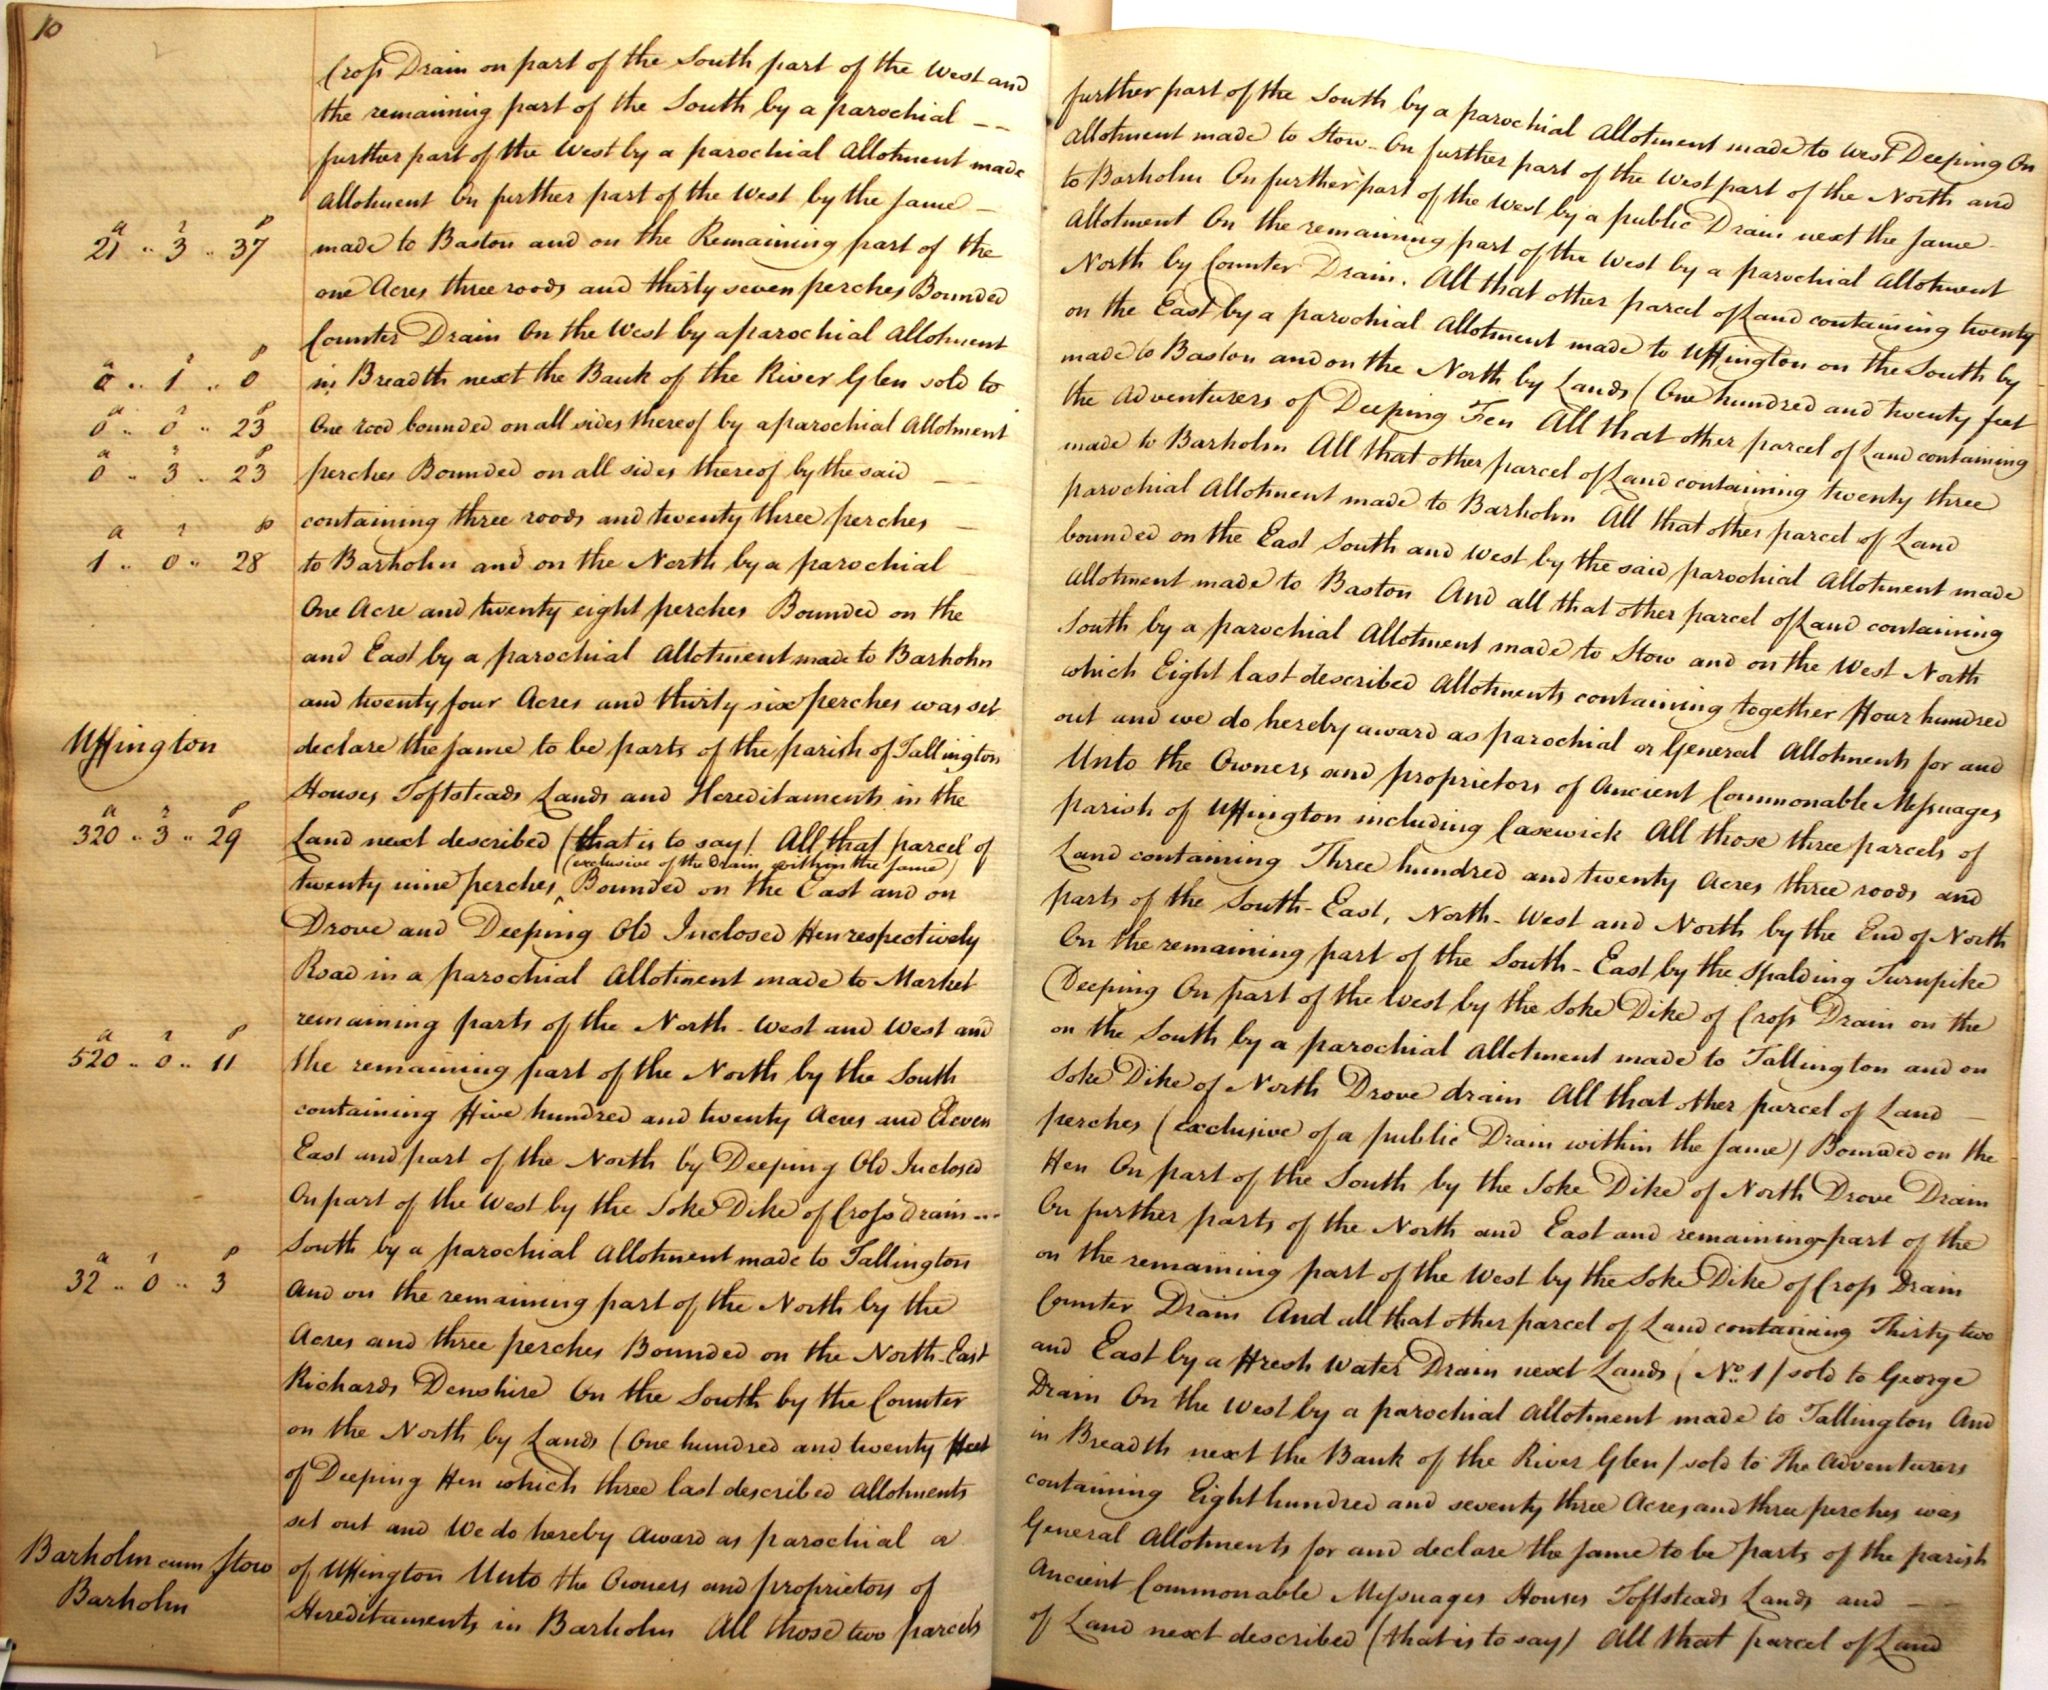 10
Cross Drain on part of the South part of the West and
further part of the South by a parochial Allotment made to West Deeping On
the remaining part of the South by a parochial - -
Allotment made to Stow - On further part of the West part of the North and
further part of the West by a parochial Allotment made
to Barholm On further part of the West by a public Drain next the same -
Allotment On further part of the West by the same -
Allotment On the remaining part of the West by a parochial Allotment
a r p
21 .. 3 .. 37
made to Baston and on the Remaining part of the
North by Counter Drain. All that other parcel of Land containing twenty
one Acres three roods and thirty seven perches Bounded
on the East by a parochial Allotment made to Uffington on the South by
Counter Drain On the West by a parochial Allotment
made to Baston and on the North by Lands (One hundred and twenty feet
a r p
0 .. 1 .. 0
in Breadth next the Bank of the River Glen sold to
the Adventurers of Deeping Fen All that other parcel of Land containing
a r p
0 .. 0 .. 23
One rood bounded on all sides thereof by a parochial Allotment
made to Barholm All that other parcel of Land containing twenty three
a r p
0 .. 3 .. 23
perches Bounded on all sides thereof by the said - -
parochial Allotment made to Barholm All that other parcel of Land
containing three roods and twenty three perches -
bounded on the East South and West by the said parochial Allotment made
a r p
1 .. 0 .. 28
to Barholm and on the North by a parochial -
Allotment made to Baston And all that other parcel of Land containing
One Acre and twenty eight perches Bounded on the
South by a parochial Allotment made to Stow and on the West North
and East by a parochial Allotment made to Barholm
which Eight last described Allotments containing together Four hundred
and twenty four Acres and thirty six perches was set
out and we do hereby award as parochial or General Allotments for and
Uffington
declare the same to be parts of the parish of Tallington
Unto the Owners and proprietors of Ancient Commonable Messuages
Houses Toftsteads Lands and Hereditaments in the
parish of Uffington including Casewick All those three parcels of
a r p
320 .. 3 .. 29
Land next described (that is to say) All that parcel of
Land containing Three hundred and twenty Acres three roods and
(exclusive of the Drain within the same)
twenty nine perches ^ Bounded on the East and on
parts of the South-East, North-West and North by the End of North
Drove and Deeping Old Inclosed Fen respectively
On the remaining part of the South-East by the Spalding Turnpike
Road in a parochial Allotment made to Market
Deeping On part of the West by the Soke Dike of Cross Drain on the
remaining parts of the North-West and West and
on the South by a parochial Allotment made to Tallington and on
a r p
520 .. 0 .. 11
the remaining part of the North by the South
Soke Dike of North Drove drain All that other parcel of Land -
containing Five hundred and twenty Acres and Eleven
perches (exclusive of a public Drain within the same) Bounded on the
East and part of the North by Deeping Old Inclosed
Fen On part of the South by the Soke Dike of North Drove Drain
On part of the West by the Soke Dike of Cross Drain ---
On further parts of the North and East and remaining part of the
South by a parochial Allotment made to Tallington
on the remaining part of the West by the Soke Dike of Cross Drain
a r p
32 .. 0 .. 3
And on the remaining part of the North by the
Counter Drain And all that other parcel of Land containing Thirty two
Acres and three perches Bounded on the North-East
and East by a Fresh Water Drain next Lands (No. 1) sold to George
Richards Denshire On the South by the Counter
Drain On the West by a parochial Allotment made to Tallington And
on the North by Lands (One hundred and twenty Feet
in Breadth next the Bank of the River Glen) sold to The Adventurers
of Deeping Fen which three last described Allotments
containing Eight hundred and seventy three Acres and three perches was
set out and We do hereby Award as parochial or
General Allotments for and declare the same to be parts of the parish
Barholm cum Stow
Barholm
of Uffington Unto the Owners and proprietors of
Ancient Commonable Messuages Houses Toftsteads Lands and - -
Hereditaments in Barholm All those two parcels
of Land next described (that is to say) All that parcel of Land